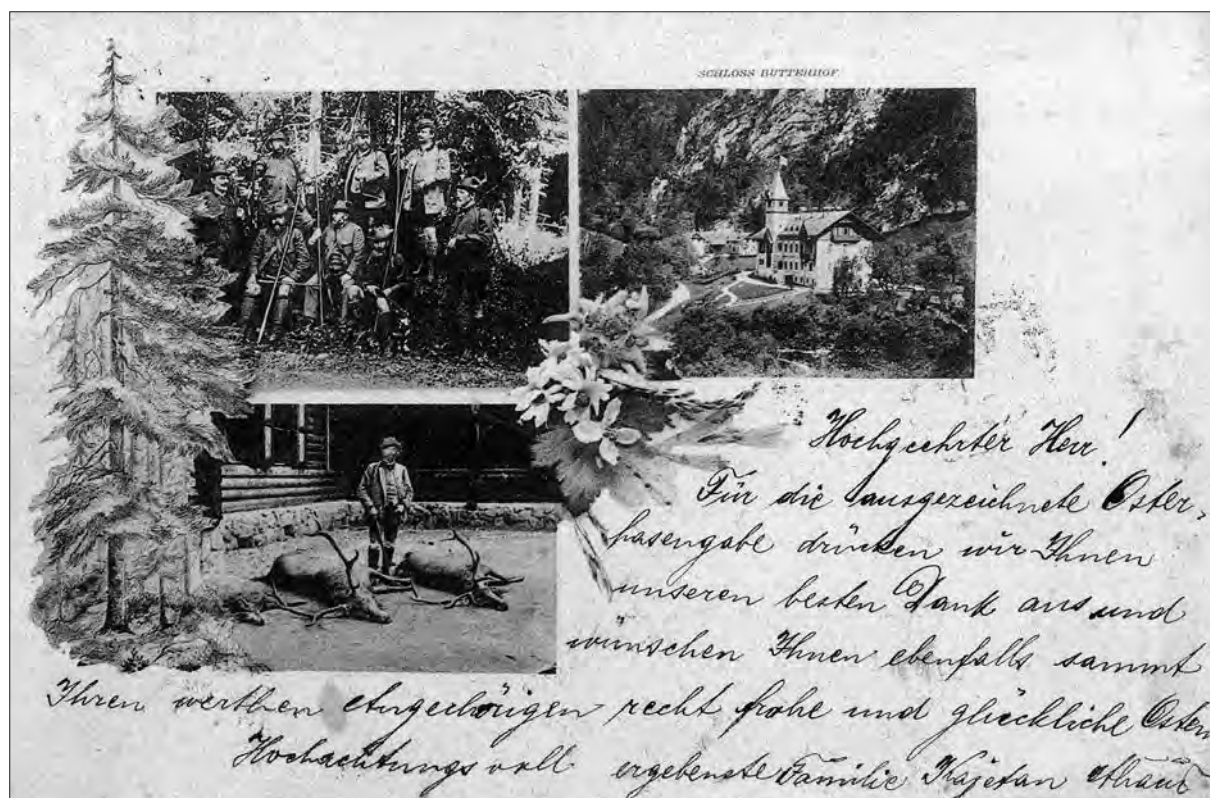 SCHLOSS BUTTERHOF
Hochgeehrter Herr!
Für die ausgezeichnete Oster-
hasengabe drücken wir Ihnen
unseren besten Dank aus und
wünschen Ihnen ebenfalls sammt
Ihren werthen Angehörigen recht frohe und glückliche Ostern
Hochachtungsvoll ergebenste Familie Kajetan